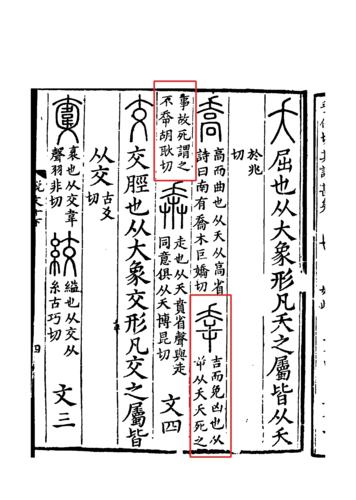 夭屈也从大象形凡夭之屬皆从夭
於兆
切
喬
高而曲也从夭从高省
詩曰南有喬木巨嬌切
㚔
吉而免凶也从
屰从夭夭死之
事故死謂之
不㚔胡耿切
奔
走也从夭賁省聲與走
同意俱从夭博昆切
文四
交交脛也从大象交形凡交之屬皆
从交
古爻
切
衺也从交韋
聲羽非切
絞
縊也从交从
糸古巧切
文三
說文十下
四